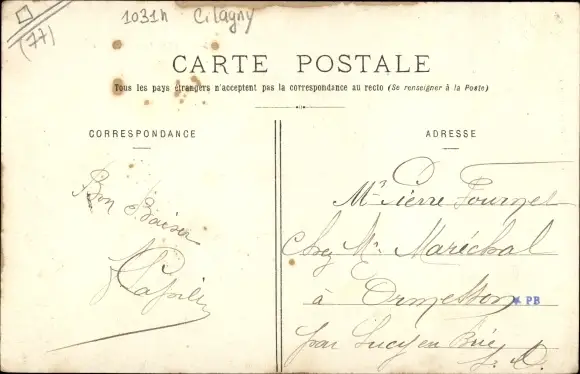 (77)
1031h Cilagny
CARTE POSTALE
Tous les pays étrangers n'acceptent pas la correspondance au recto (Se renseigner à la Poste)
CORRESPONDANCE
Bon Baiser
ADRESSE
Mr Pierre Fournet
Chez Mr Maréchal
à Ormesson
PB
par Sucy en Brie
S. O.